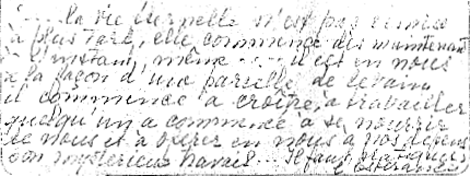 ... la vie éternelle n'est pas remise
à plus tard, elle commence dès maintenant
à l'instant même .... il est en nous
à la façon d'une parcelle de levain
il commence à croître, à travailler
quelqu'un a commencé à se nourrir
de nous et à opérer en nous à nos dépens
son mystérieux travail... Il faut